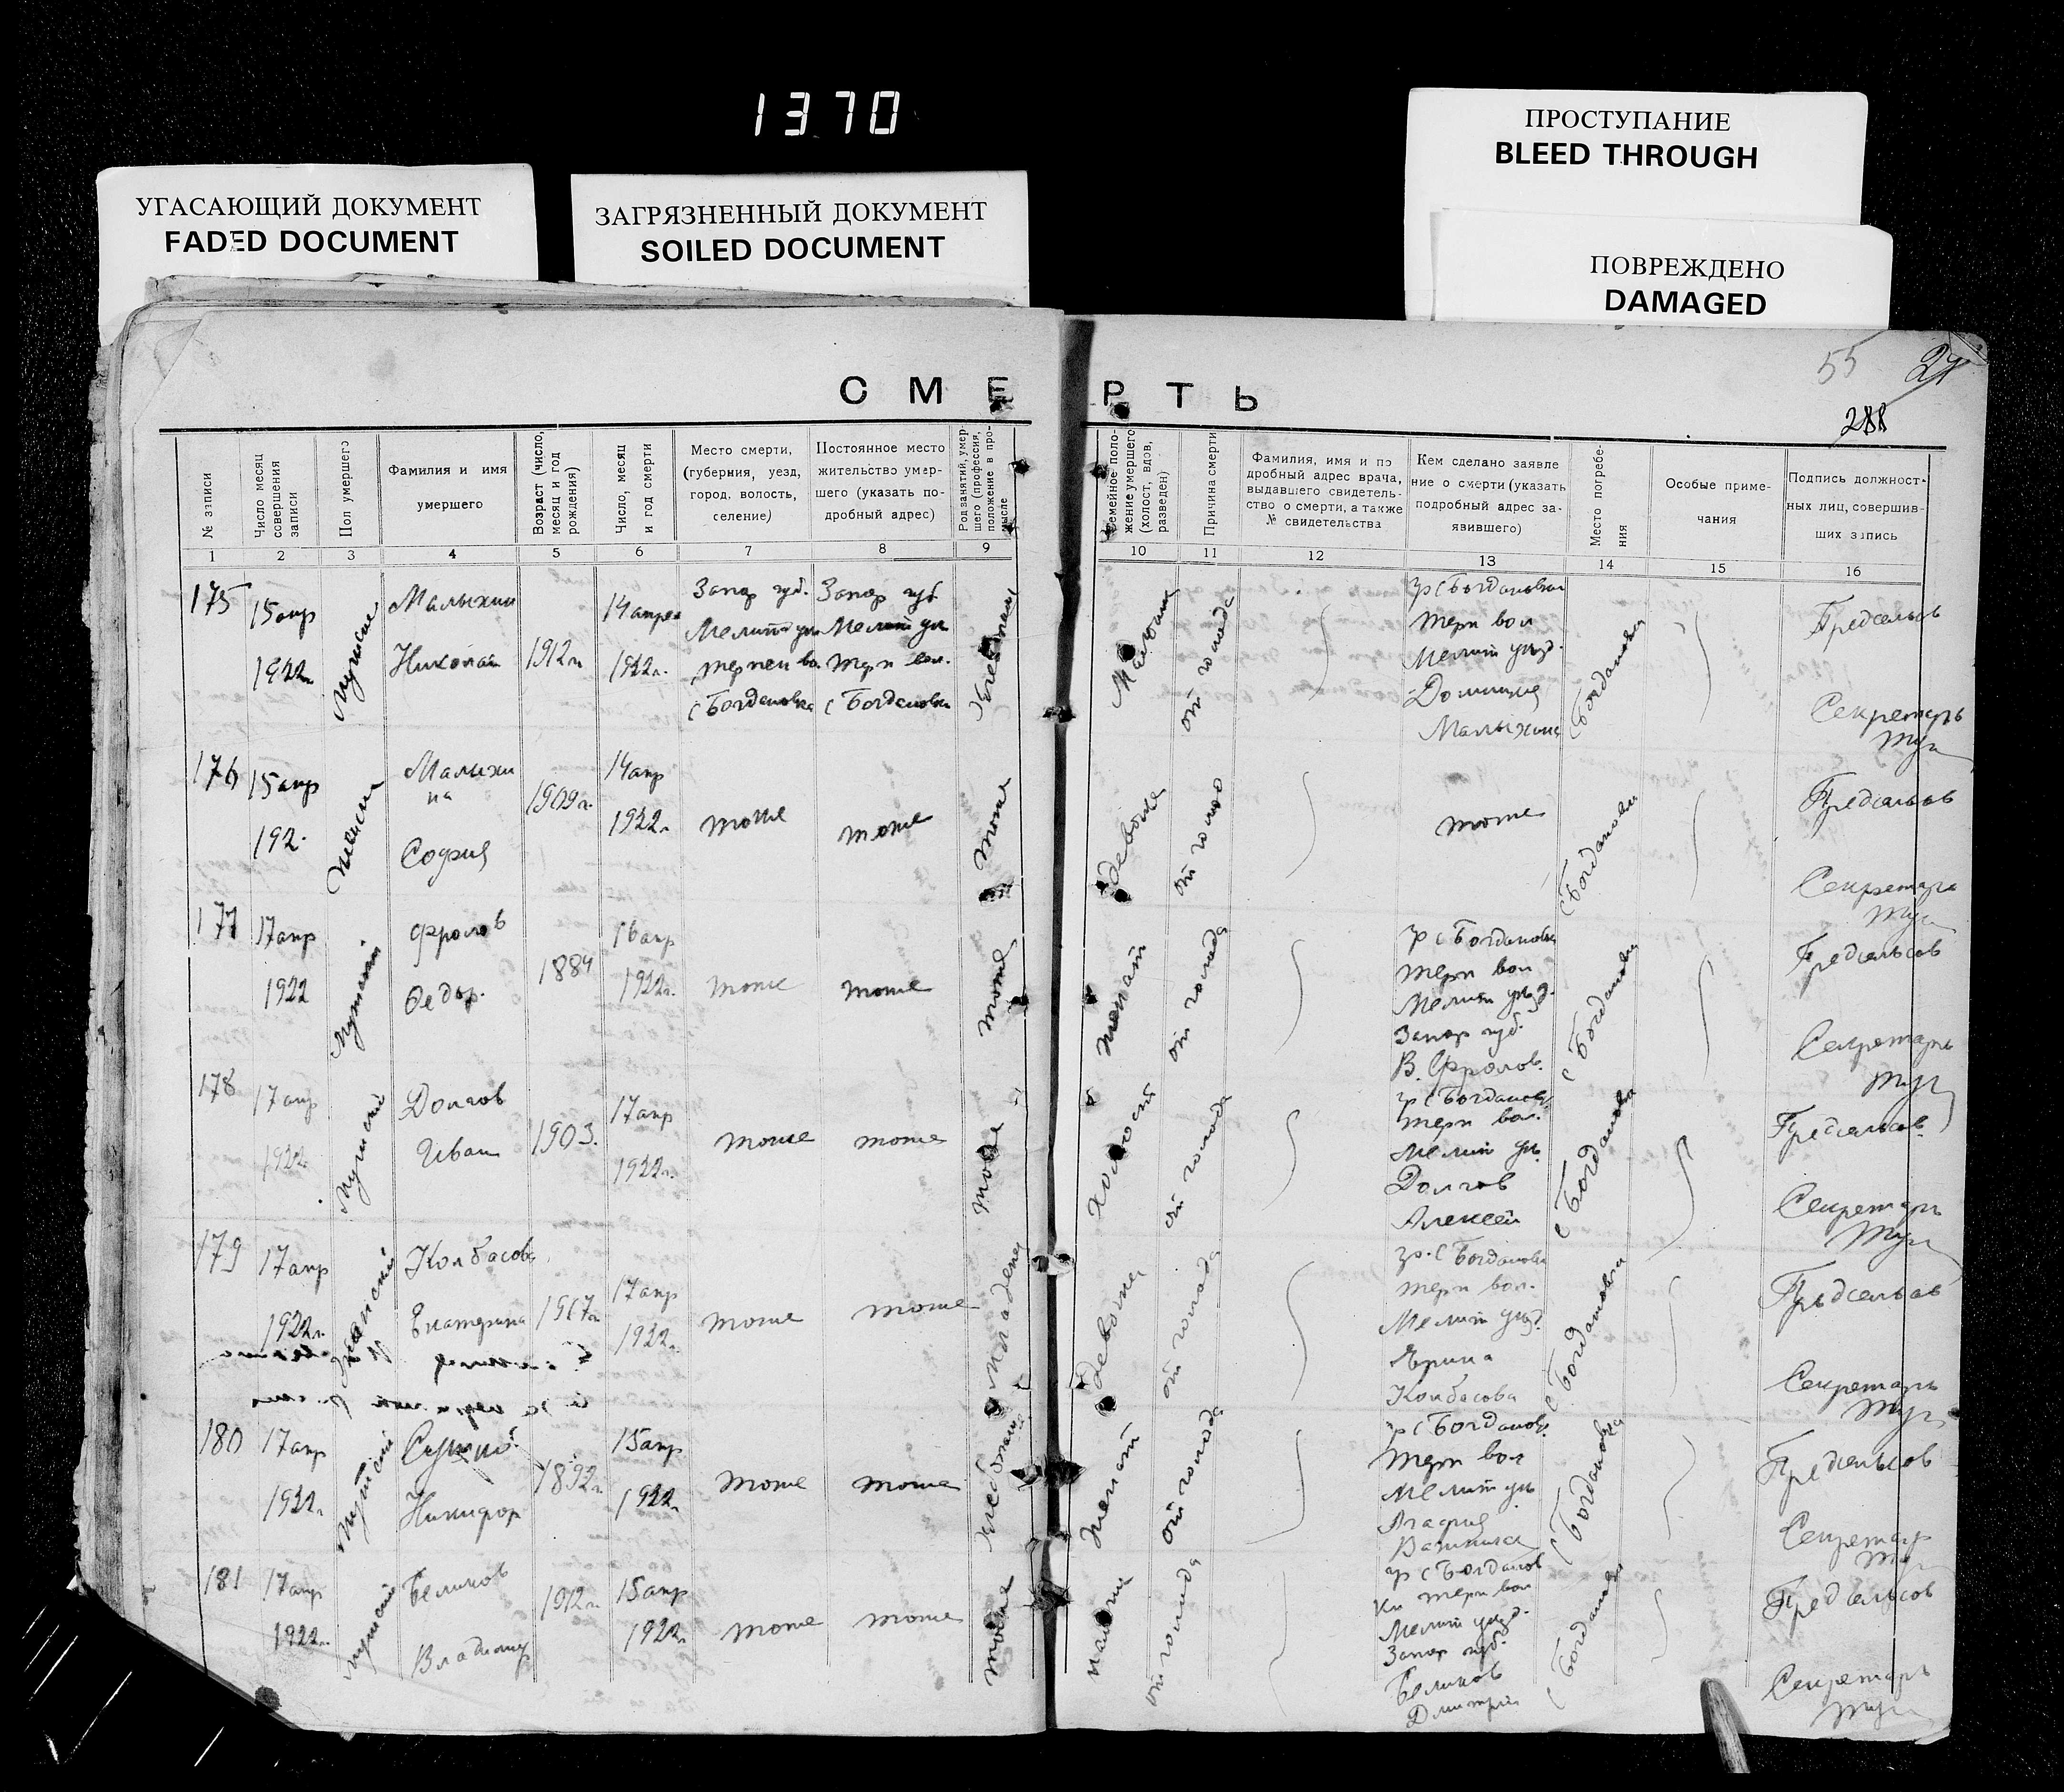 1370
УГАСАЮЩИЙ ДОКУМЕНТ
FADED DOCUMENT
ЗАГРЯЗНЕННЫЙ ДОКУМЕНТ
SOILED DOCUMENT
ПРОСТУПАНИЕ
BLEED THROUGH
ПОВРЕЖДЕНО
DAMAGED
55
СМЕРТЬ
№ записи
Число месяц
совершения
записи
Пол умершего
Фамилия и имя
умершего
Возраст (число,
месяц и год
рождения)
Число, месяц
и год смерти
Место смерти,
(губерния, уезд,
город, волость,
селение)
Постоянное место
жительство умер-
шего (указать по-
дробный адрес)
Род занятий, умер-
шего (профессия,
положение в про-
мысле
Семейное поло-
жение умершего
(холост, вдов,
разведен)
Причина смерти
Фамилия, имя и по
дробный адрес врача,
выдавшего свидетель-
ство о смерти, а также
№ свидетельства
Кем сделано заявле
ние о смерти (указать
подробный адрес за-
явившего)
Место погребе-
ния
Особые приме-
чания
Подпись должност-
ных лиц, совершив-
ших запись
1 2 3 4 5 6 7 8 9 10 11 12 13 14 15 16
175
15 апр
1922г.
Малыхин
Николай
1912г.
14 апрел
1922г.
Запор губ.
Мелит
с Богдановка
Запор губ
Мелит
Терп вол.
с Богдановка
от голода
гр с Богдановки
Терп вол
Мелит уезд.
с Богдановка
Предсельсов
Секретарь
176
15 апр
192.
женски
Малыхи
на
София
1909г.
14 апр
1922г.
тоже
тоже
тоже
девочка
от голода
тоже
с Богдановка
Предсельсов
Секретарь
177
17 апр
1922
Мужской
Фролов
Федор.
1884
16 апр
1922г.
тоже
тоже
тоже
женат
от голода
гр с Богдановка
Терп вол
Мелит уезд.
Запор губ.
В. Фролов.
с Богдановка
Предсельсов
Секретарь
178
17 апр
1922
Мужской
Долгов
Иван
1903.
17 апр
1922г.
тоже
тоже
тоже
холост
от голода
гр с Богдановк
Терп вол.
Мелит уез.
Долгов
Алексей
с Богдановка
Предсельсов.
Секретарь
179
17 апр
1922г.
Женский
Колбасова
Екатерина
17 апр
1922г.
тоже
тоже
младенец
девочка
от голода
гр. с Богдановка
Терп вол.
Мелит уезд.
Ярина
Колбасова
с Богдановка
Предсельсов
Секретарь
180
17 апр
1922г
Мужской
Никифор
1892г.
15 апр
1922г.
тоже
тоже
Хлебопаш
женат
от голода
гр с Богдановк.
Терп вол
Мелит уез
с Богдановка
Предсельсов
Секретар
181
17 апр
1922г.
мужской
Беликов
Владимир
1912г.
15 апр
1922г.
тоже
тоже
тоже
от голода
гр с Богданов
ки Терп вол
Мелит уезд.
Запор губ.
Беликов
Дмитрий
с Богдановка
Предсельсов
Секретарь